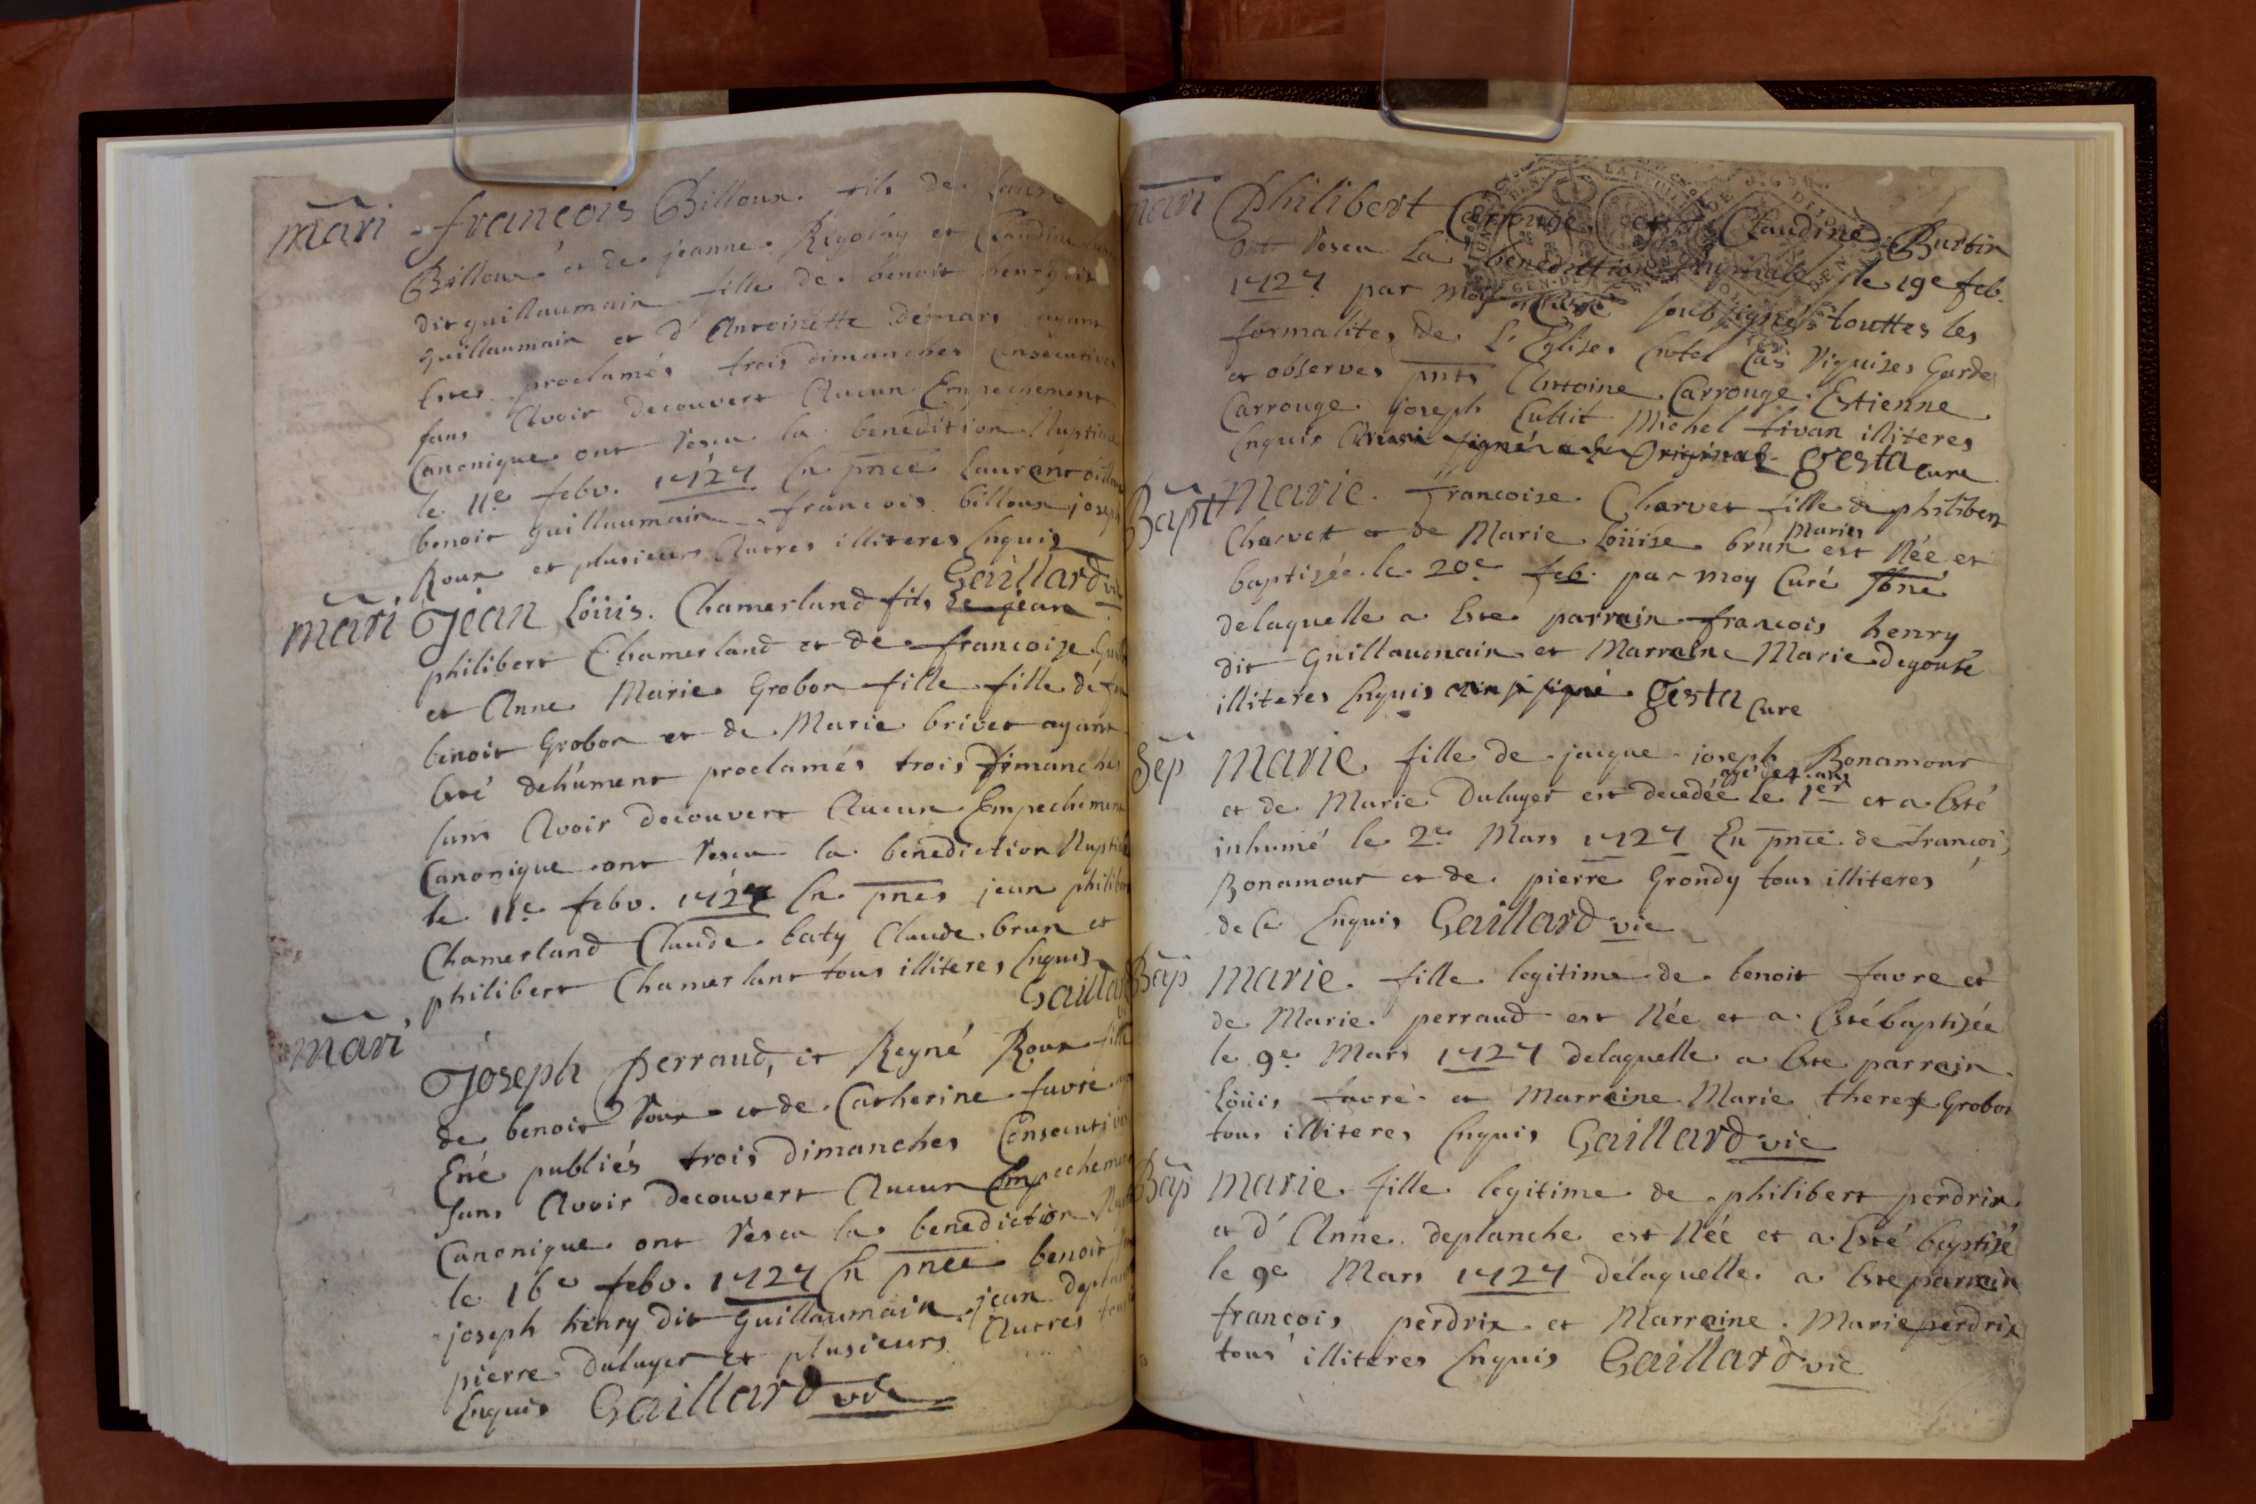 mari
francois Billoux fils de
Billoux et de jeanne Rigolay et
dit guillaumain fille de benoit henry dit
guillaumain et d'Antoinette demars ayant
Estes proclamés trois dimanches Consecutives
sans Avoir decouvert Aucun Empechement
Canonique ont resçu la benedition Nuptiale
le 11e febv. 1727 En pnce Laurent billoux
benoit guillaumain francois billoux joseph
Roux et plusieurs Autres illiteres Enquis
Gaillard vic
mari
Jean Loüis Chamerland fils de jean
philibert Chamerland et de francoise
et Anne Marie Grobon fille fille de feu
benoit Grobon et de Marie brivet ayant
Esté dehument proclamés trois dimanches
sans Avoir decouvert Aucun Empechement
Canonique ont resçu la benediction Nuptiale
le 11e febv. 1727 En pnes jean philibert
Chamerland Claude baty Claude brun et
philibert Chamerlant tous illiteres Enquis
Gaillard
mari
Joseph Perraud, et Reyné Roux fille
de benoit Roux et de Catherine favre
Esté publiés trois dimanches Consecutives
sans Avoir decouvert Aucun Empechement
Canonique ont resçu la benediction
le 16e febv. 1727 En pnce benoit
joseph henry dit Guillaumain jean
pierre duluyer et plusieurs Autres tous
Enquis Gaillard vic
mari
Philibert Carrouge et Claudine Burtin
ont resçu La benediction Nuptiale le 19e feb.
1727 par moy Curé soubsigné touttes les
formalites de L'Eglise
et observes pnts Antoine Carrouge Estienne
Carrouge joseph Cultit Michel tivan illiteres
Enquis gesta Cure
Bapt
Marie francoise Charvet fille de philibert
Charvet et de Marie Loüise brun maries est Née et
baptizée le 20e feb. par moy Curé sbné
delaquelle a Este parrain francois henry
dit Guillaumain et Marraine Marie degouté
illiteres Enquis gesta Cure
Sep
Marie fille de jaique joseph Bonamour
agé de 4 ans
et de Marie Duluyer est decedée le 1er et a Esté
inhumé le 2e Mars 1727 En pnce de francois
Bonamour et de pierre Grondy tous illiteres
de Ce Enquis Gaillard vic
Bap
Marie fille legitime de benoit favre et
de Marie perraud est Née et a Esté baptizée
le 9e Mars 1727 delaquelle a Este parrain
Loüis favre et Marraine Marie therese Grobon
tous illiteres Enquis Gaillard vic
Bap
Marie fille legitime de philibert perdrix
et d'Anne deplanche est Née et a Esté baptisé
le 9e Mars 1727 delaquelle a Este parrain
francois perdrix et Marraine Marie perdrix
tous illiteres Enquis Gaillard vic